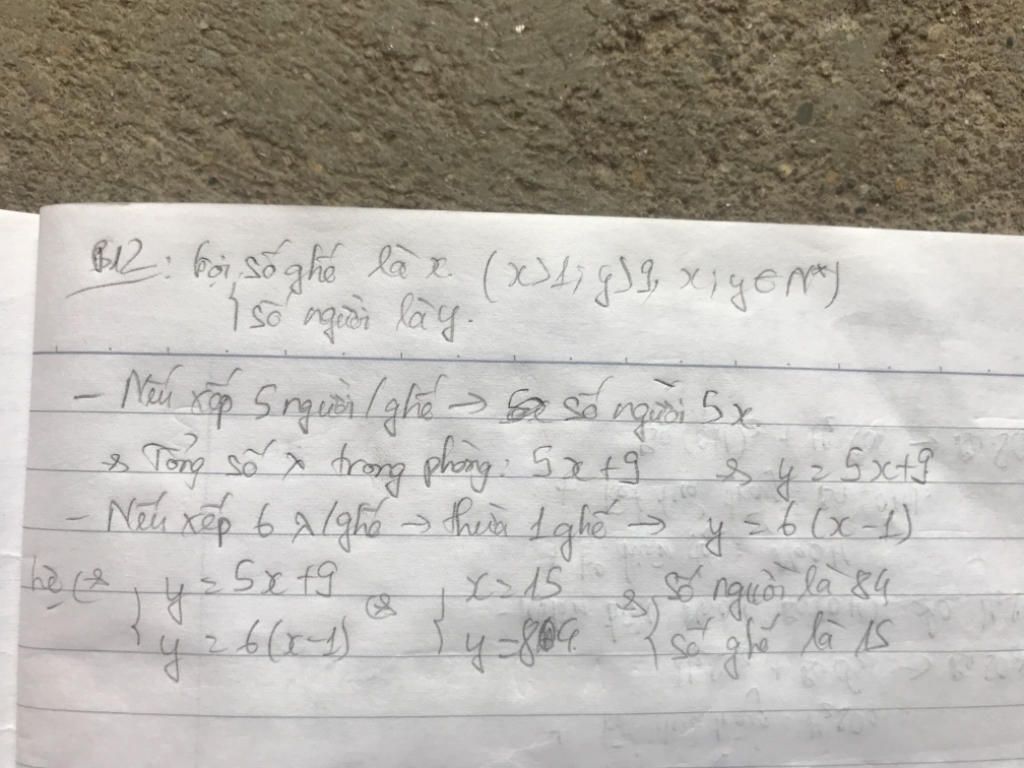 B12: Gọi số ghế là x. (x>1; y>9, x; y ∈ N*)
số người là y.
- Nếu xếp 5 người/ghế → số người 5x
=> Tổng số λ trong phòng: 5x+9 => y = 5x+9
- Nếu xếp 6 λ/ghế → thừa 1 ghế → y = 6(x-1)
y = 5x+9 x=15 số người là 84
y = 6(x-1) y=84 số ghế là 15